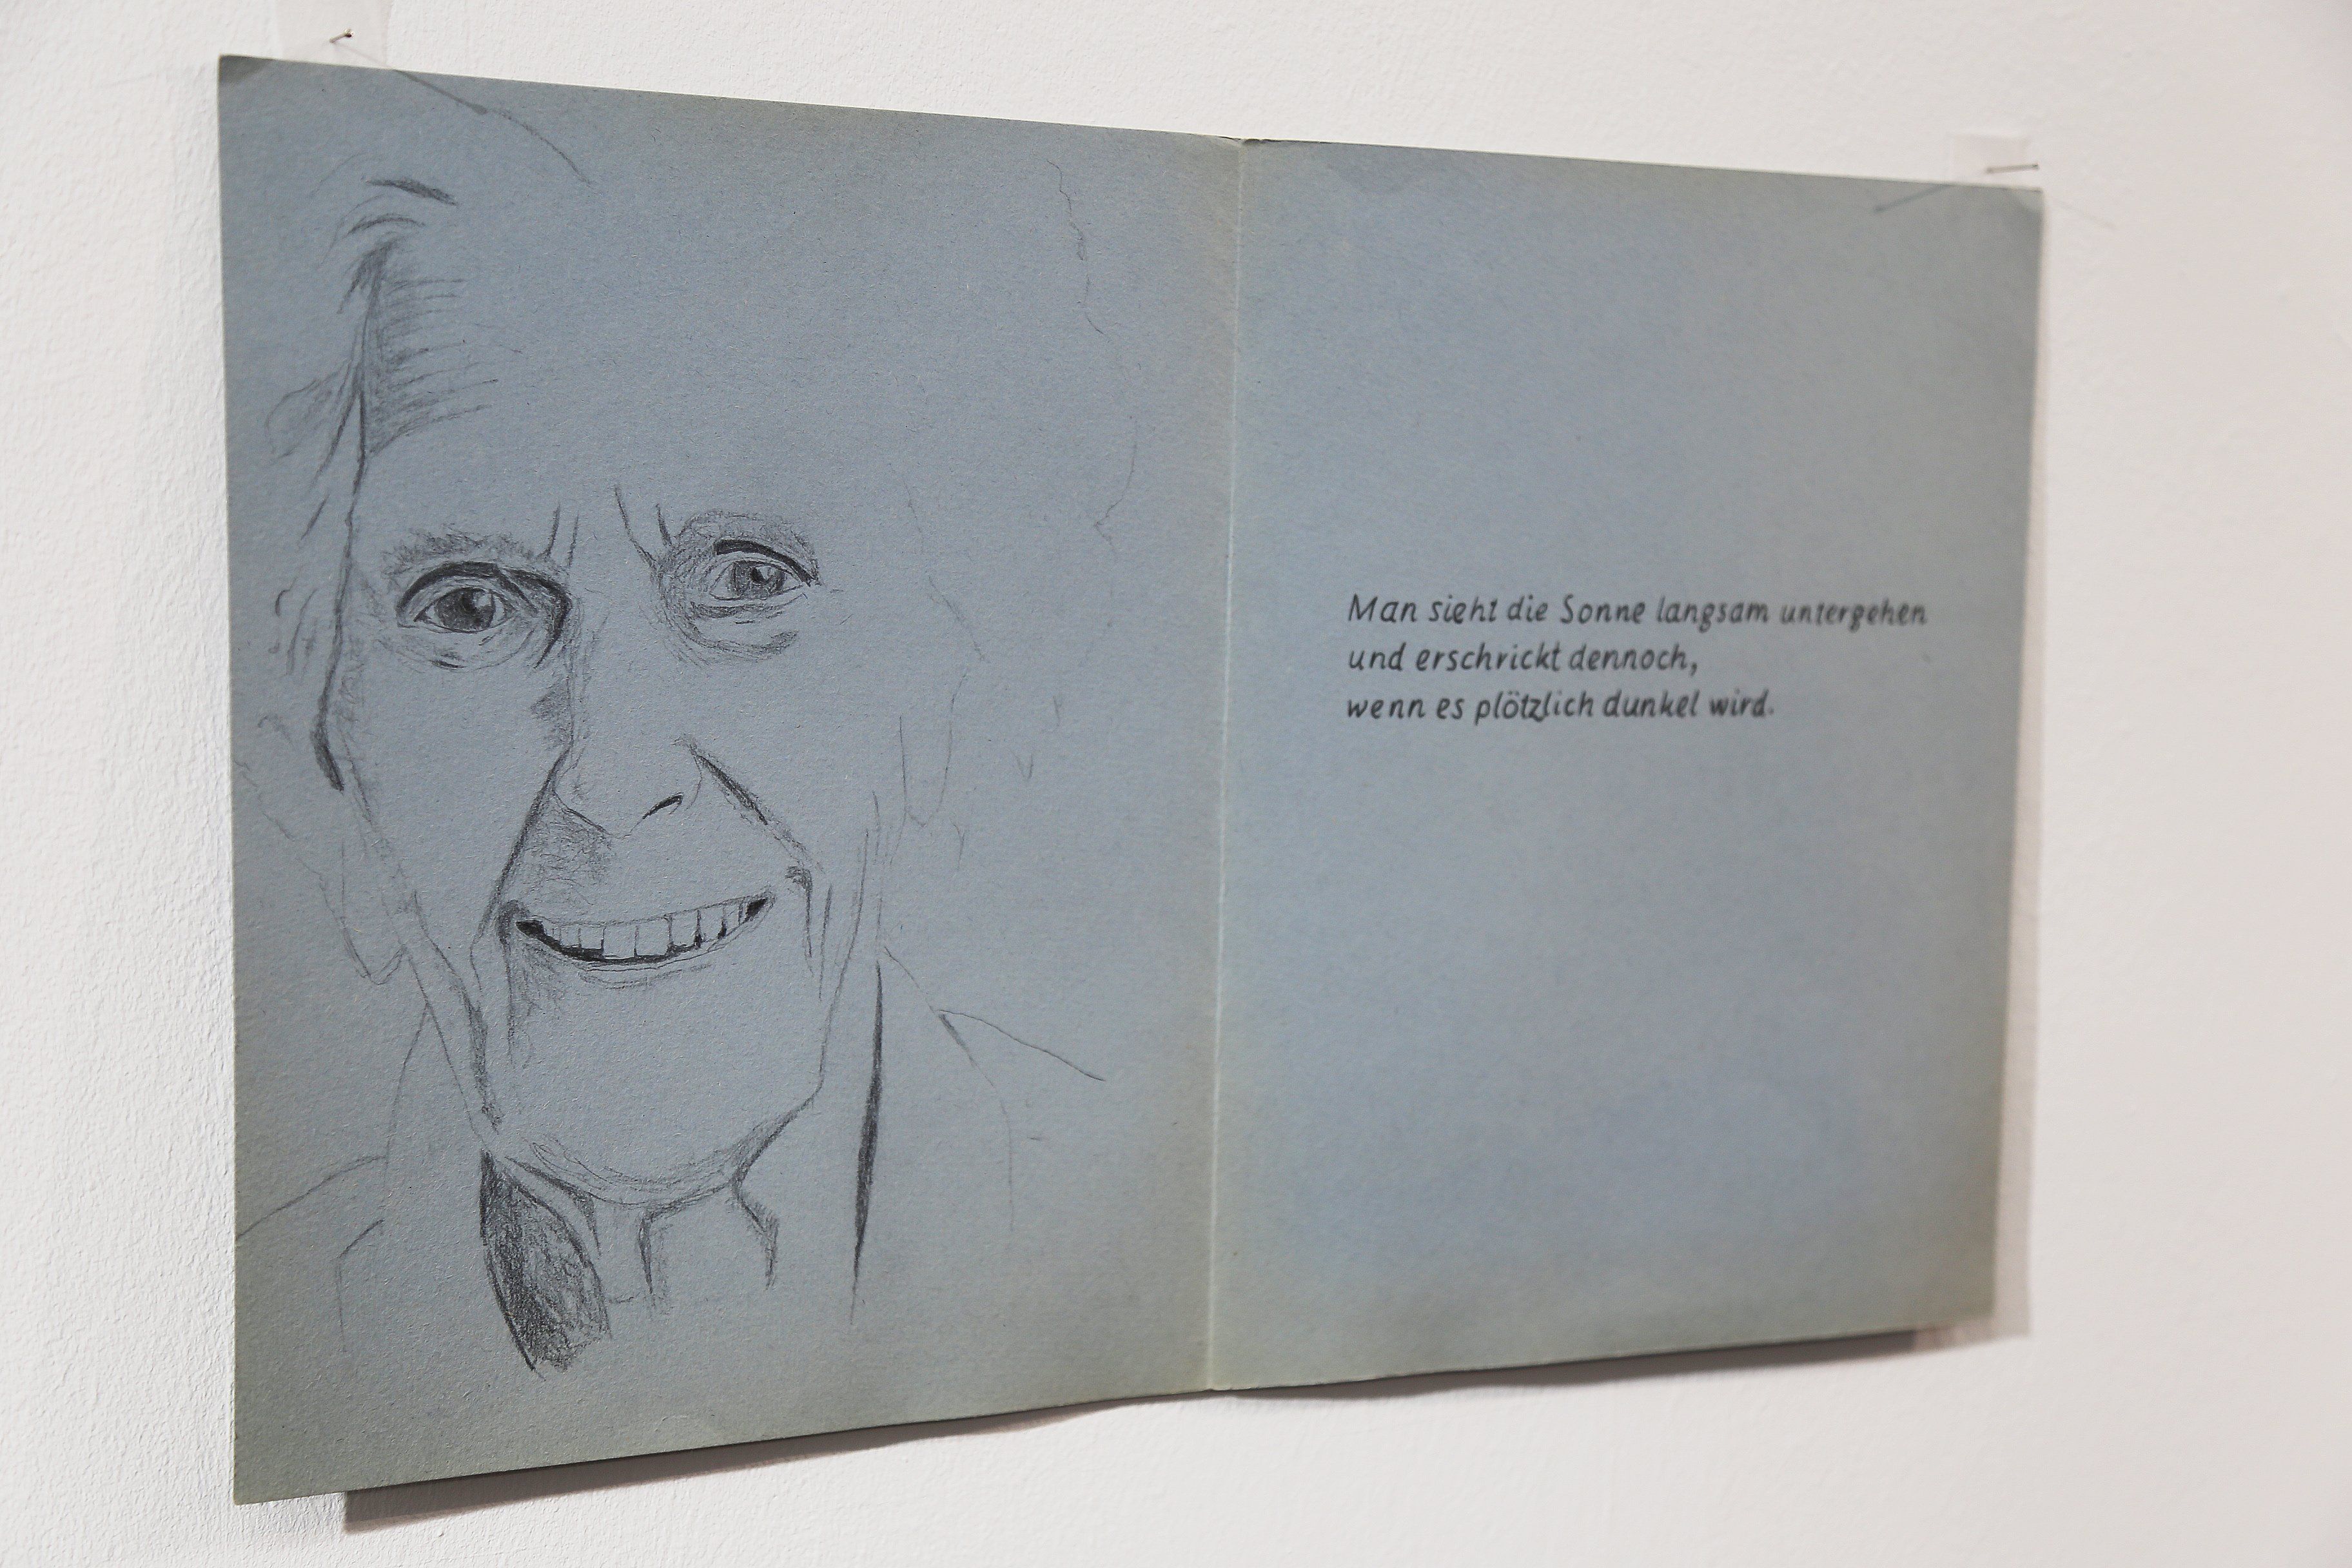 Man sieht die Sonne langsam untergehen
und erschrickt dennoch,
wenn es plötzlich dunkel wird.